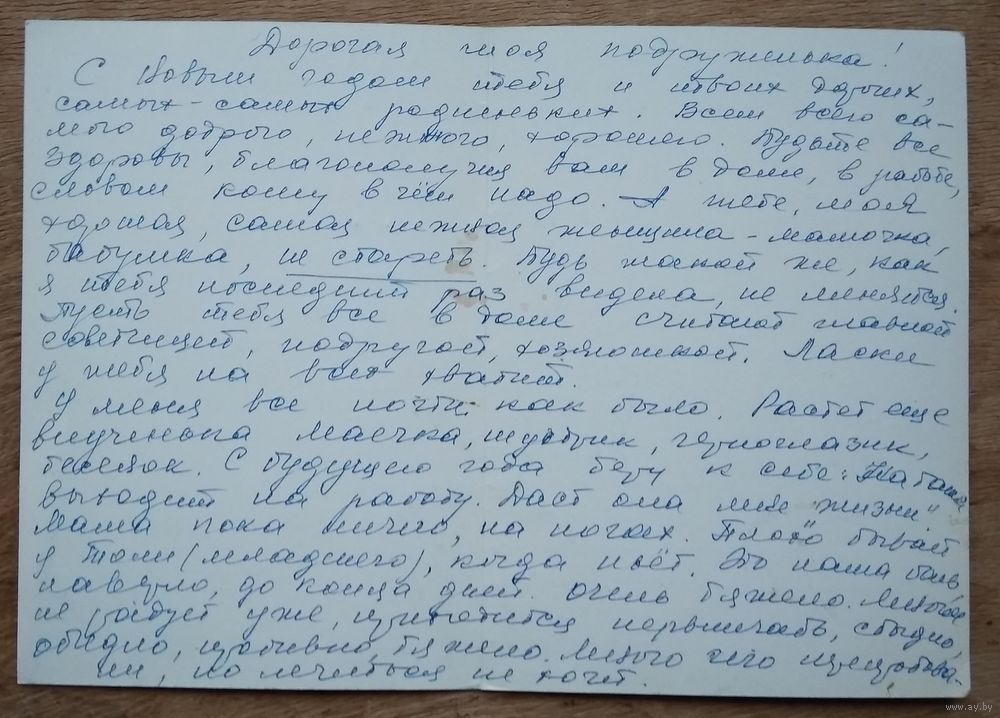 Дорогая моя подруженька!
С Новым годом тебя и твоих дорогих,
самых-самых родненьких. Всем всего са-
мого доброго, нежного, хорошего. Будьте все
здоровы, благополучия вам в доме, в работе,
словом кому в чём надо. А тебе, моя
хорошая, самая нежная женщина - мамочка,
бабушка, не стареть. Будь такой же, как
я тебя последний раз видела, не меняйся.
Пусть тебя все в доме считают главной
советчицей, подругой, хозяюшкой. Ласки
у тебя на всех хватит.
У меня все почти как было. Растет еще
внученька Маечка, шустрик, черноглазик,
бесенок. С будущего года беру к себе: Наташа
выходит на работу. Даст она мне "жизни".
Мама пока ничего, на ногах. Плохо бывает
у Толи (младшего), когда пьёт. Это наша боль,
наверно, до конца дней. Очень тяжело.
не радует уже, приходится нервничать, стыдно,
обидно, противно, тяжело. Много чего испробова-
ли, но лечиться не хочет.
www.ay.by